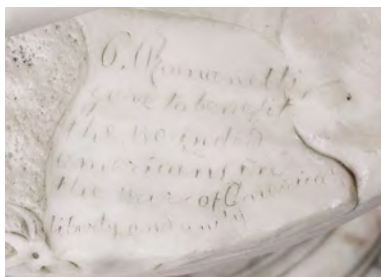 C. Romanelli
gave to benefit
the wounded
americans in
the war of America
liberty and unity